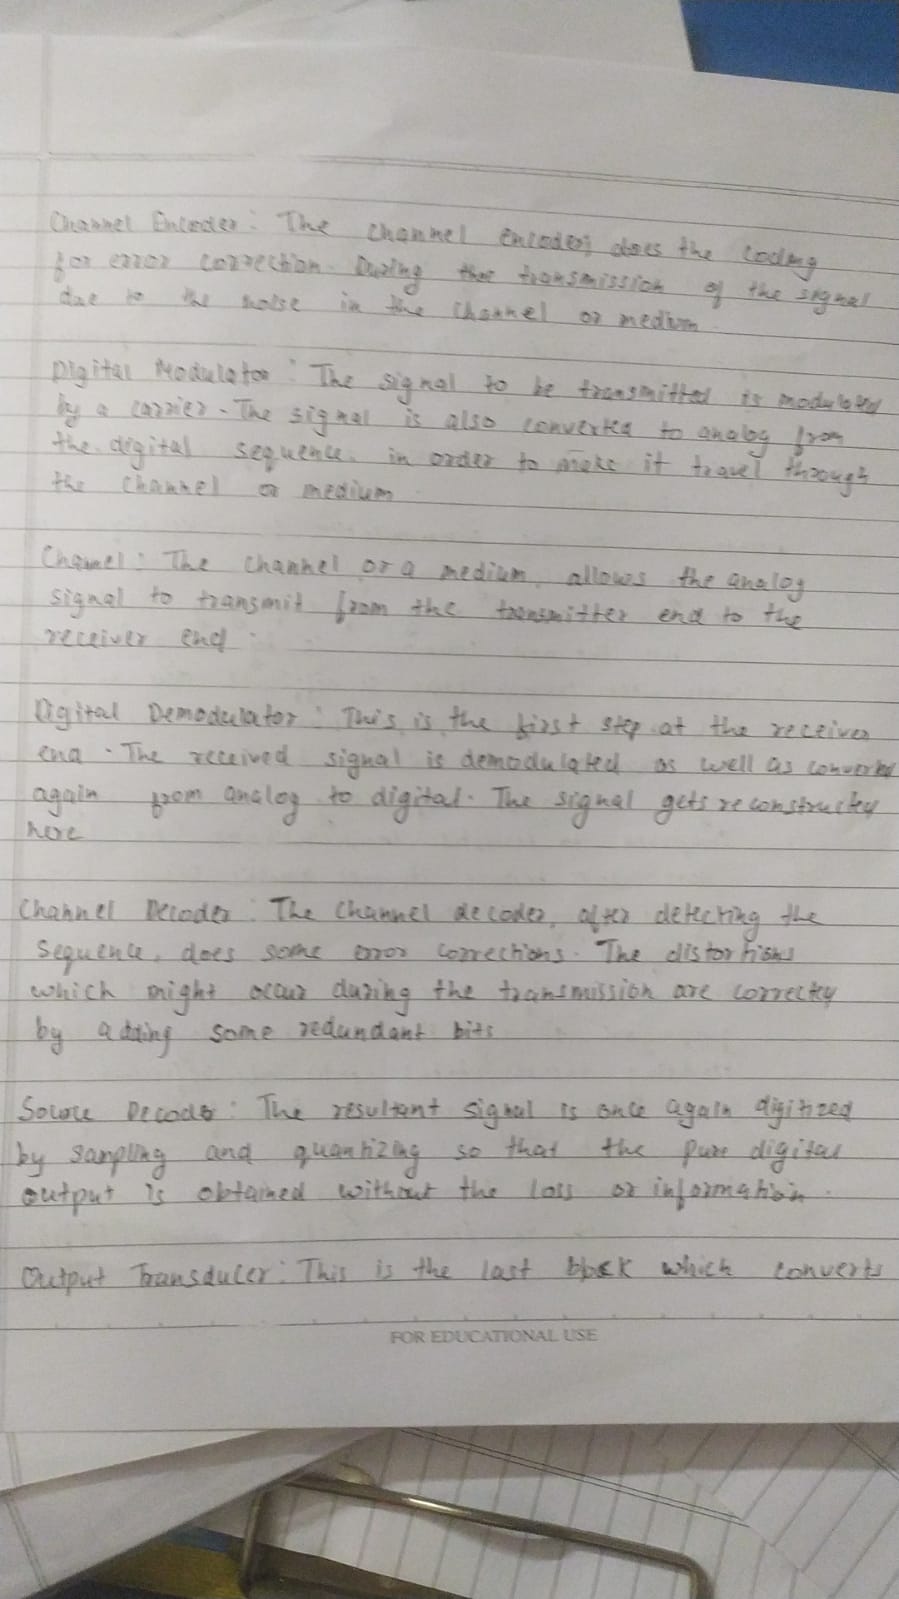 Channel Encoder: The channel encoder, does the coding
for error correction. During the transmission of the signal
due to the noise in the channel or medium.
Digital Modulator: The signal to be transmitted is modulated
by a carrier. The signal is also converted to analog from
the digital sequence, in order to make it travel through
the channel or medium
Channel: The channel or a medium, allows the analog
signal to transmit from the transmitter end to the
receiver end.
Digital Demodulator: This is the first step at the receiver
end. The received signal is demodulated as well as converted
again from analog to digital. The signal gets reconstructed
here
Channel Decoder: The channel decoder, after detecting the
sequence, does some error corrections. The distortions
which might occur during the transmission are corrected
by adding some redundant bits
Source Decoder: The resultant signal is once again digitized
by sampling and quantizing so that the pure digital
output is obtained without the loss or information.
Output Transducer: This is the last block which converts
FOR EDUCATIONAL USE